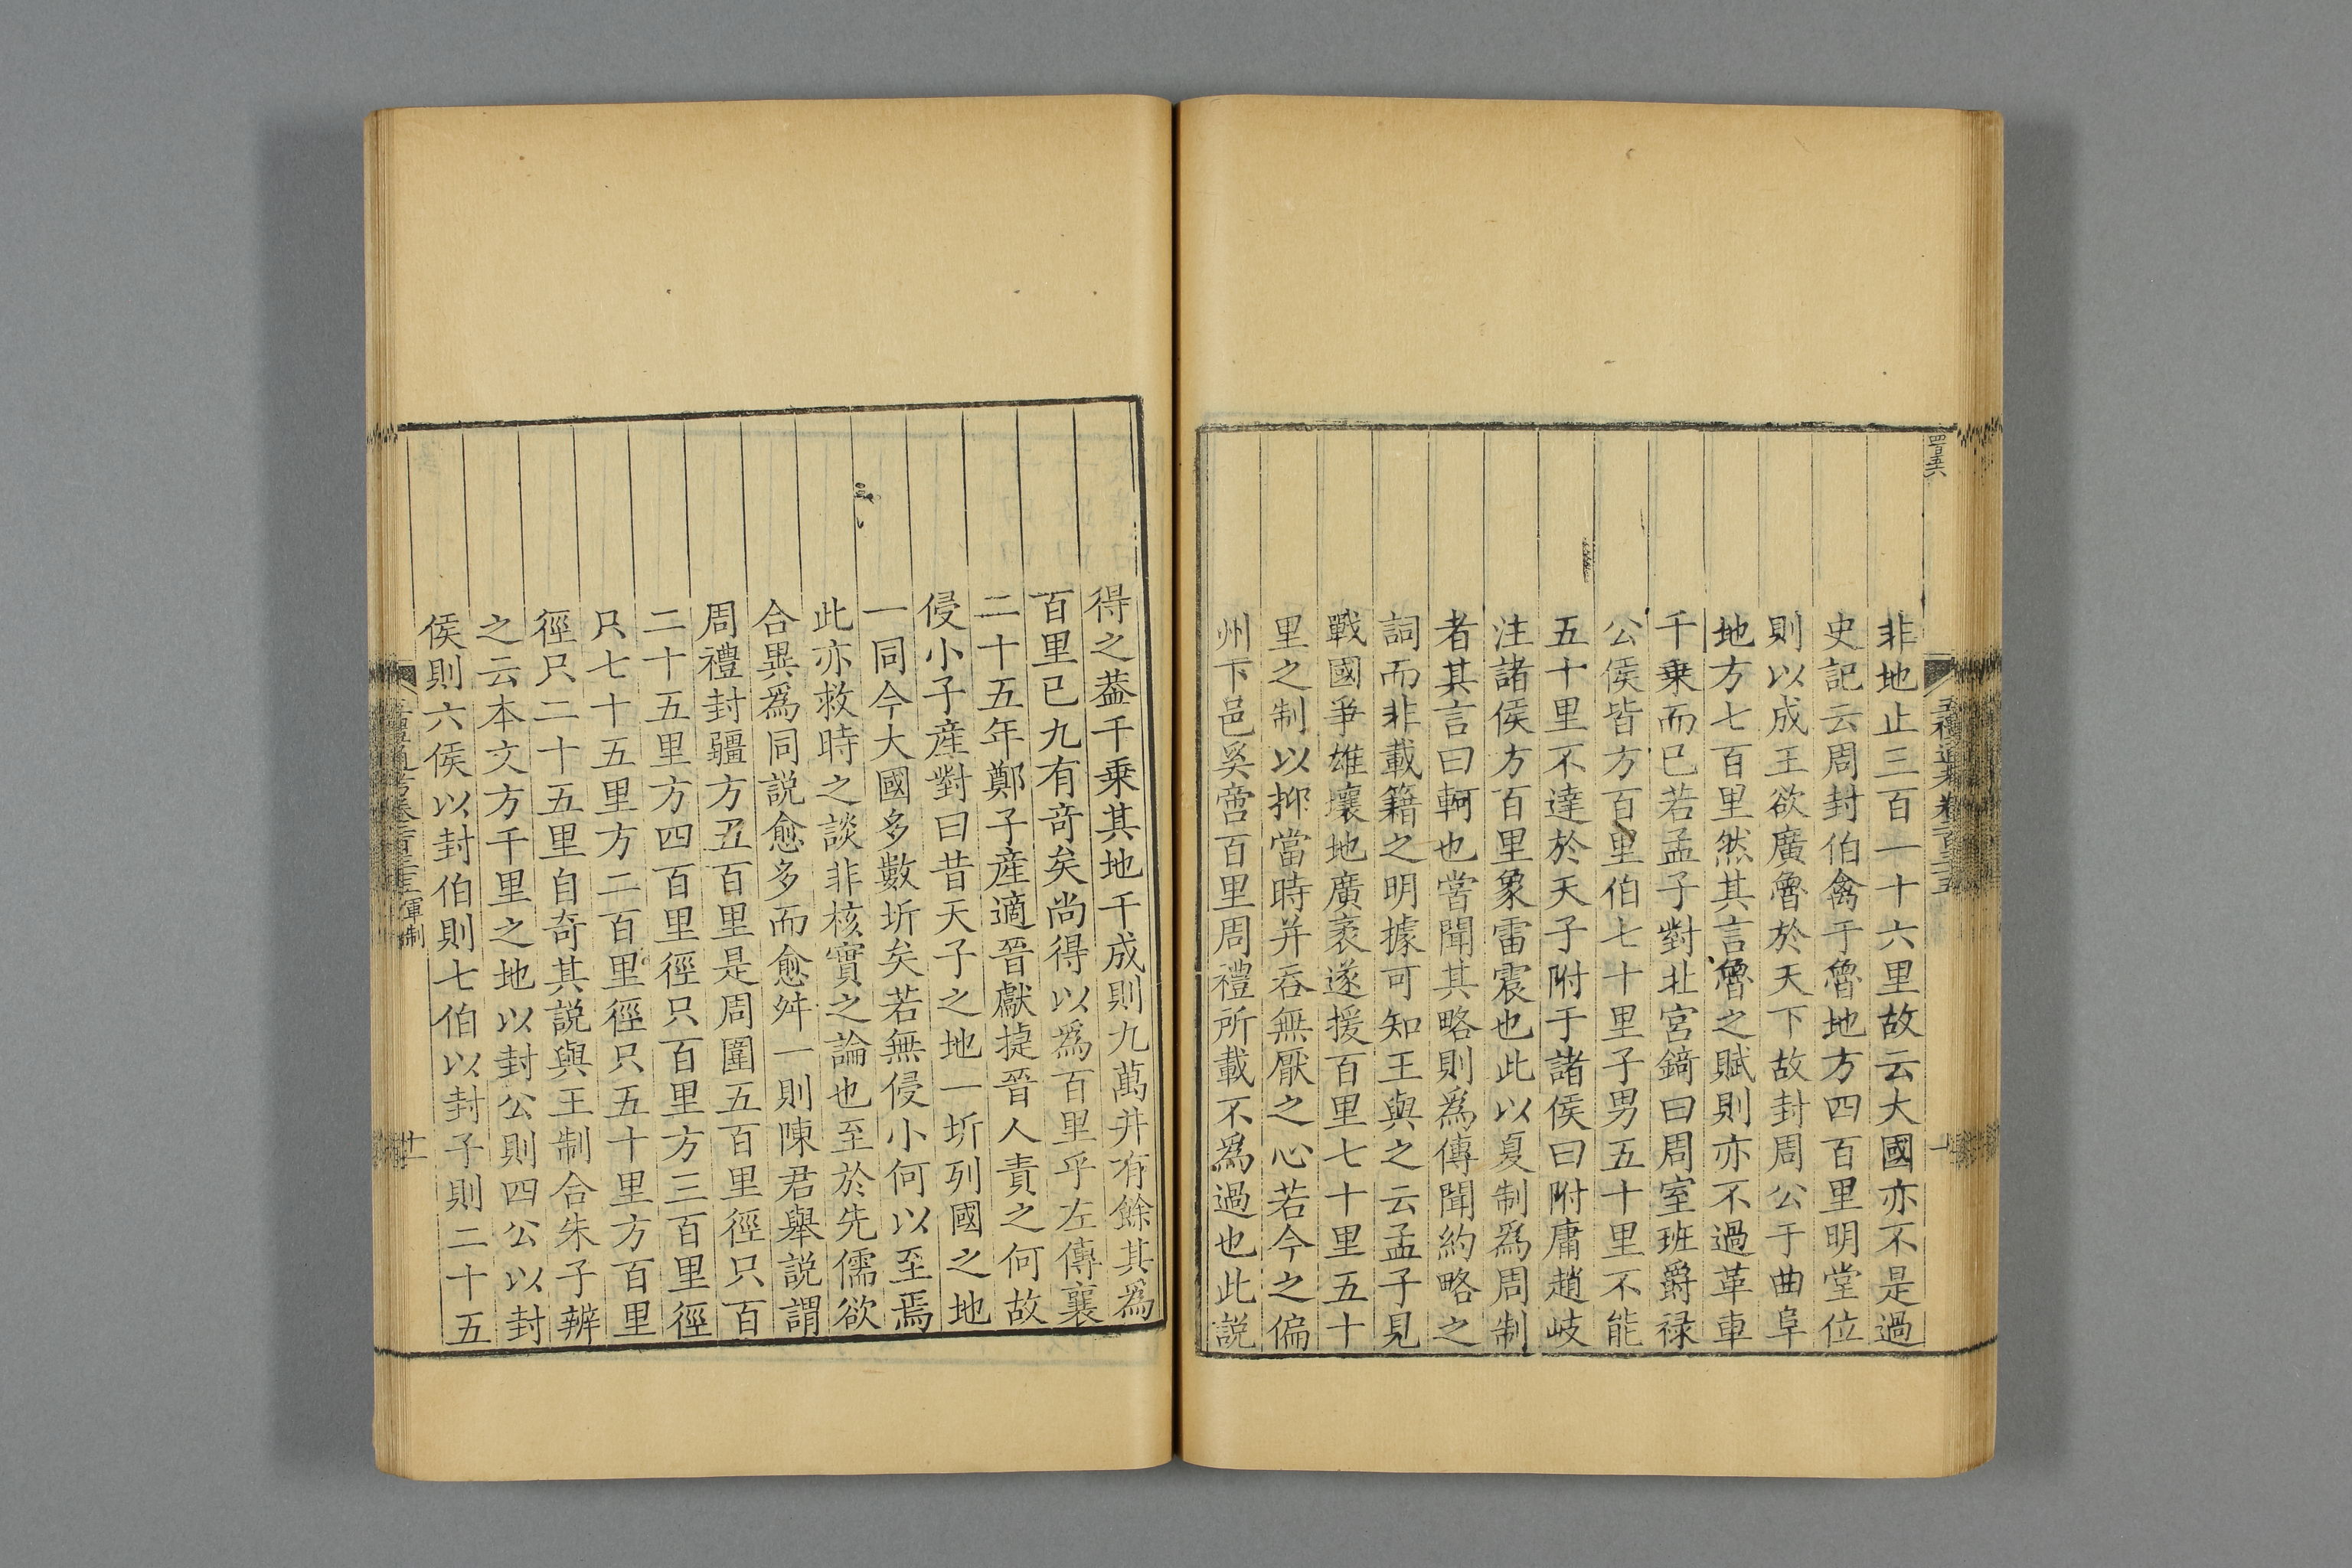 非地止三百一十六里故云大國亦不是過
史記云周封伯禽于魯地方四百里明堂位
則以成王欲廣魯於天下故封周公于曲阜
地方七百里然其言魯之賦則亦不過革車
千乗而已若孟子對北宮錡曰周室班爵禄
公侯皆方百里伯七十里子男五十里不能
五十里不達於天子附于諸侯曰附庸趙岐
注諸侯方百里象雷震也此以夏制爲周制
者其言曰軻也嘗聞其略則爲傳聞約略之
詞而非載籍之明據可知王與之云孟子見
戰國爭雄壤地廣袤遂援百里七十里五十
里之制以抑當時并吞無厭之心若今之偏
州下邑奚啻百里周禮所載不爲過也此説
得之葢千乗其地千成則九萬井有餘其爲
百里已九有竒矣尚得以爲百里乎左傳襄
二十五年鄭子産適晉獻㨗晉人責之何故
侵小子産對曰昔天子之地一圻列國之地
一同今大國多數圻矣若無侵小何以至焉
此亦救時之談非核實之論也至於先儒欲
合異爲同説愈多而愈舛一則陳君舉説謂
周禮封疆方五百里是周圍五百里徑只百
二十五里方四百里徑只百里方三百里徑
只七十五里方二百里徑只五十里方百里
徑只二十五里自奇其説與王制合朱子辨
之云本文方千里之地以封公則四公以封
侯則六侯以封伯則七伯以封子則二十五